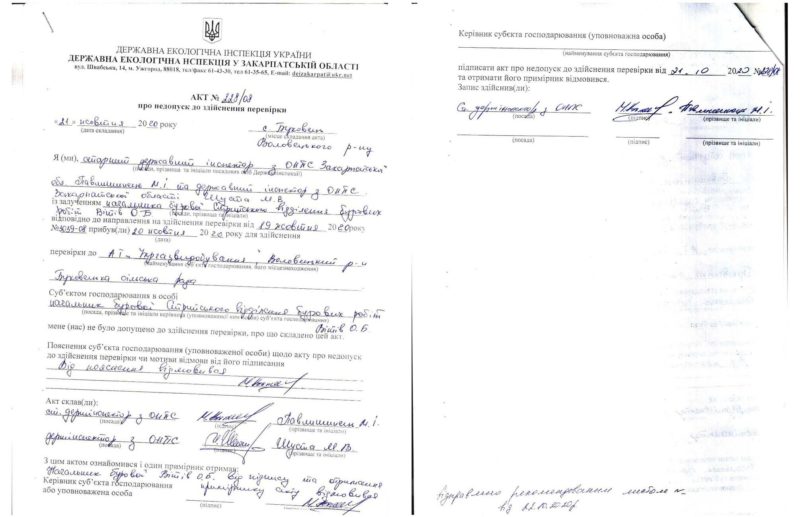 ДЕРЖАВНА ЕКОЛОГІЧНА ІНСПЕКЦІЯ УКРАЇНИ
ДЕРЖАВНА ЕКОЛОГІЧНА ІНСПЕКЦІЯ У ЗАКАРПАТСЬКІЙ ОБЛАСТІ
вул. Швабська, 14, м. Ужгород, 88018, тел/факс 61-43-30, тел 61-35-65, E-mail: deizakarpat@ukr.net
АКТ №
про недопуск до здійснення перевірки
«21» жовтня 2020 року
(дата складання)
с. Буковець
(місце складання акта)
Воловецького р-ну
Я (ми), старший державний інспектор з ОНПС Закарпатської
(посади, прізвища та ініціали посадових осіб Держекоінспекції)
обл. Павлишинець М.І. та державний інспектор з ОНПС
Закарпатської області Шуста М.В.
із залученням начальника бурової Стрийського відділення бурових
(посади, прізвища та ініціали)
робіт Вітів О.Б.
відповідно до направлення на здійснення перевірки від 19 жовтня 2020 року
прибув(ли) 20 жовтня 2020 року для здійснення
(дата)
перевірки до АТ „Укргазвидобування", Воловецький р-н
(найменування суб'єкта господарювання, його місцезнаходження)
сільська рада
Суб'єктом господарювання в особі
начальник бурової Стрийського відділення бурових робіт
(посада, прізвище та ініціали керівника (уповноваженої ним особи) суб'єкта господарювання)
Вітів О.Б.
мене (нас) не було допущено до здійснення перевірки, про що складено цей акт.
Пояснення суб'єкта господарювання (уповноваженої особи) щодо акту про недопуск
до здійснення перевірки чи мотиви відмови від його підписання
Від пояснення відмовився
Акт склав(ли):
ст. держінспектор з ОНПС Павлишинець М.І.
(посада) (підпис) (прізвище та ініціали)
держінспектор з ОНПС Шуста М.В.
(посада) (підпис) (прізвище та ініціали)
З цим актом ознайомився і один примірник отримав:
Начальник бурової Вітів О.Б. від підпису та отримання
Керівник суб'єкта господарювання примірнику акту відмовився
або уповноважена особа
Керівник суб'єкта господарювання (уповноважена особа)
(найменування суб'єкта господарювання)
підписати акт про недопуск до здійснення перевірки від 21.10 2020
та отримати його примірник відмовився.
Запис здійснив(ли):
Ст. держінспектор з ОНПС Павлишинець М.І.
(посада) (підпис) (прізвище та ініціали)
(посада) (підпис) (прізвище та ініціали)
Відправлено рекомендованим листом